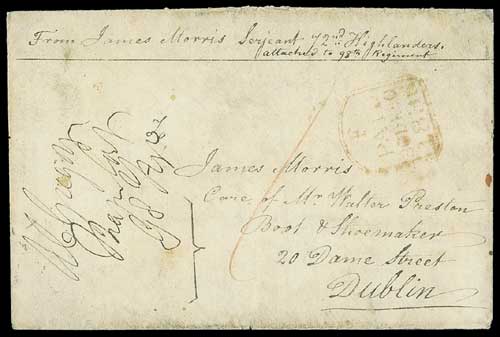 From James Morris Serjeant 72nd Highlanders.
attached to 98th Regiment
98 Regt
PAID
James Morris
Care of Mr Walter Preston
Boot & Shoemaker
20 Dame Street
Dublin